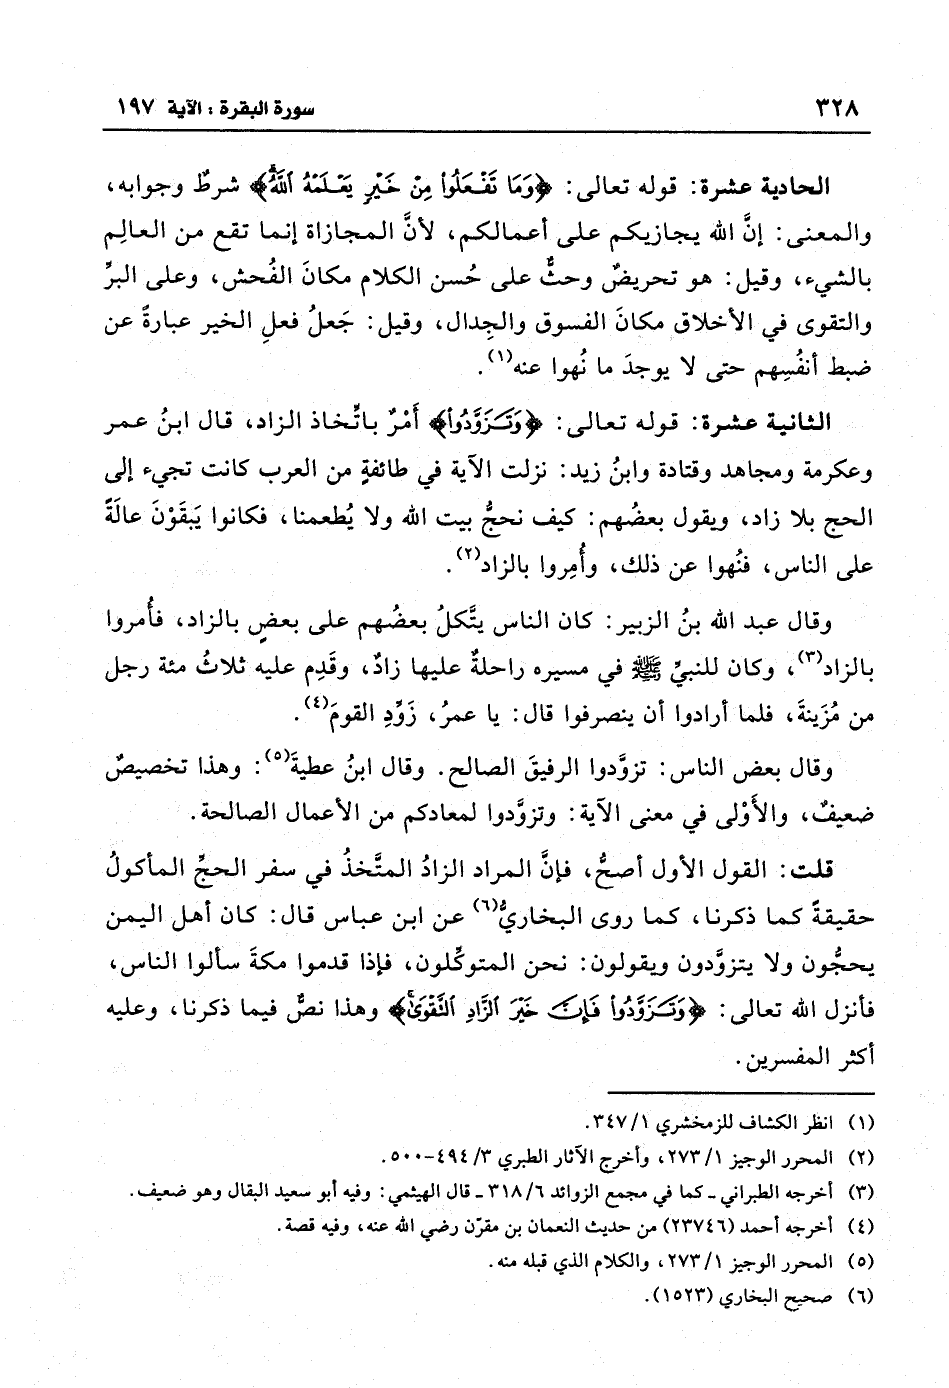 ٣٢٨
سورة البقرة : الآية ١٩٧
الحادية عشرة: قوله تعالى: ﴿وَمَا تَفْعَلُوا۟ مِنْ خَيْرٍ يَعْلَمْهُ ٱللَّهُ﴾ شرطٌ وجوابه،
والمعنى: إنَّ الله يجازيكم على أعمالكم، لأنَّ المجازاة إنما تقع من العالِم
بالشيء، وقيل: هو تحريضٌ وحثٌّ على حُسن الكلام مكانَ الفُحش، وعلى البرِّ
والتقوى في الأخلاق مكانَ الفسوق والجِدال، وقيل: جَعلُ فعلِ الخير عبارةً عن
ضبط أنفُسِهم حتى لا يوجدَ ما نُهوا عنه(١).
الثانية عشرة: قوله تعالى: ﴿وَتَكَزَوَّدُوا۟﴾ أَمْرٌ باتِّخاذ الزاد، قال ابنُ عمر
وعكرمة ومجاهد وقتادة وابنُ زيد: نزلت الآية في طائفةٍ من العرب كانت تجيء إلى
الحج بلا زاد، ويقول بعضُهم: كيف نحجُّ بيت الله ولا يُطعمنا، فكانوا يَبقَوْنَ عالَةً
على الناس، فنُهوا عن ذلك، وأُمِروا بالزاد(٢).
وقال عبد الله بنُ الزبير: كان الناس يتَّكلُ بعضُهم على بعضٍ بالزاد، فأُمروا
بالزاد(٣)، وكان للنبيِّ ﷺ في مسيره راحلةٌ عليها زادٌ، وقَدِم عليه ثلاثُ مئة رجل
من مُزَينةَ، فلما أرادوا أن ينصرفوا قال: يا عمرُ، زَوِّدِ القومَ(٤).
وقال بعض الناس: تزوَّدوا الرفيقَ الصالح. وقال ابنُ عطيةَ(٥): وهذا تخصيصٌ
ضعيفٌ، والأَوْلى في معنى الآية: وتزوَّدوا لمعادكم من الأعمال الصالحة.
قلت: القول الأول أصحُّ، فإنَّ المراد الزادُ المتَّخذُ في سفر الحجِّ المأكولُ
حقيقةً كما ذكرنا، كما روى البخاريُّ(٦) عن ابن عباس قال: كان أهل اليمن
يحجُّون ولا يتزوَّدون ويقولون: نحن المتوكِّلون، فإذا قدموا مكةَ سألوا الناس،
فأنزل الله تعالى: ﴿وَتَكَزَوَّدُوا۟ فَإِنَّ خَيْرَ ٱلزَّادِ ٱلتَّقْوَىٰ﴾ وهذا نصٌّ فيما ذكرنا، وعليه
أكثر المفسرين.
(١) انظر الكشاف للزمخشري ٣٤٧/١.
(٢) المحرر الوجيز ٢٧٣/١، وأخرج الآثار الطبري ٤٩٤/٣-٥٠٠.
(٣) أخرجه الطبراني ـ كما في مجمع الزوائد ٣١٨/٦ ـ قال الهيثمي: وفيه أبو سعيد البقال وهو ضعيف.
(٤) أخرجه أحمد (٢٣٧٤٦) من حديث النعمان بن مقرّن رضي الله عنه، وفيه قصة.
(٥) المحرر الوجيز ٢٧٣/١، والكلام الذي قبله منه.
(٦) صحيح البخاري (١٥٢٣).